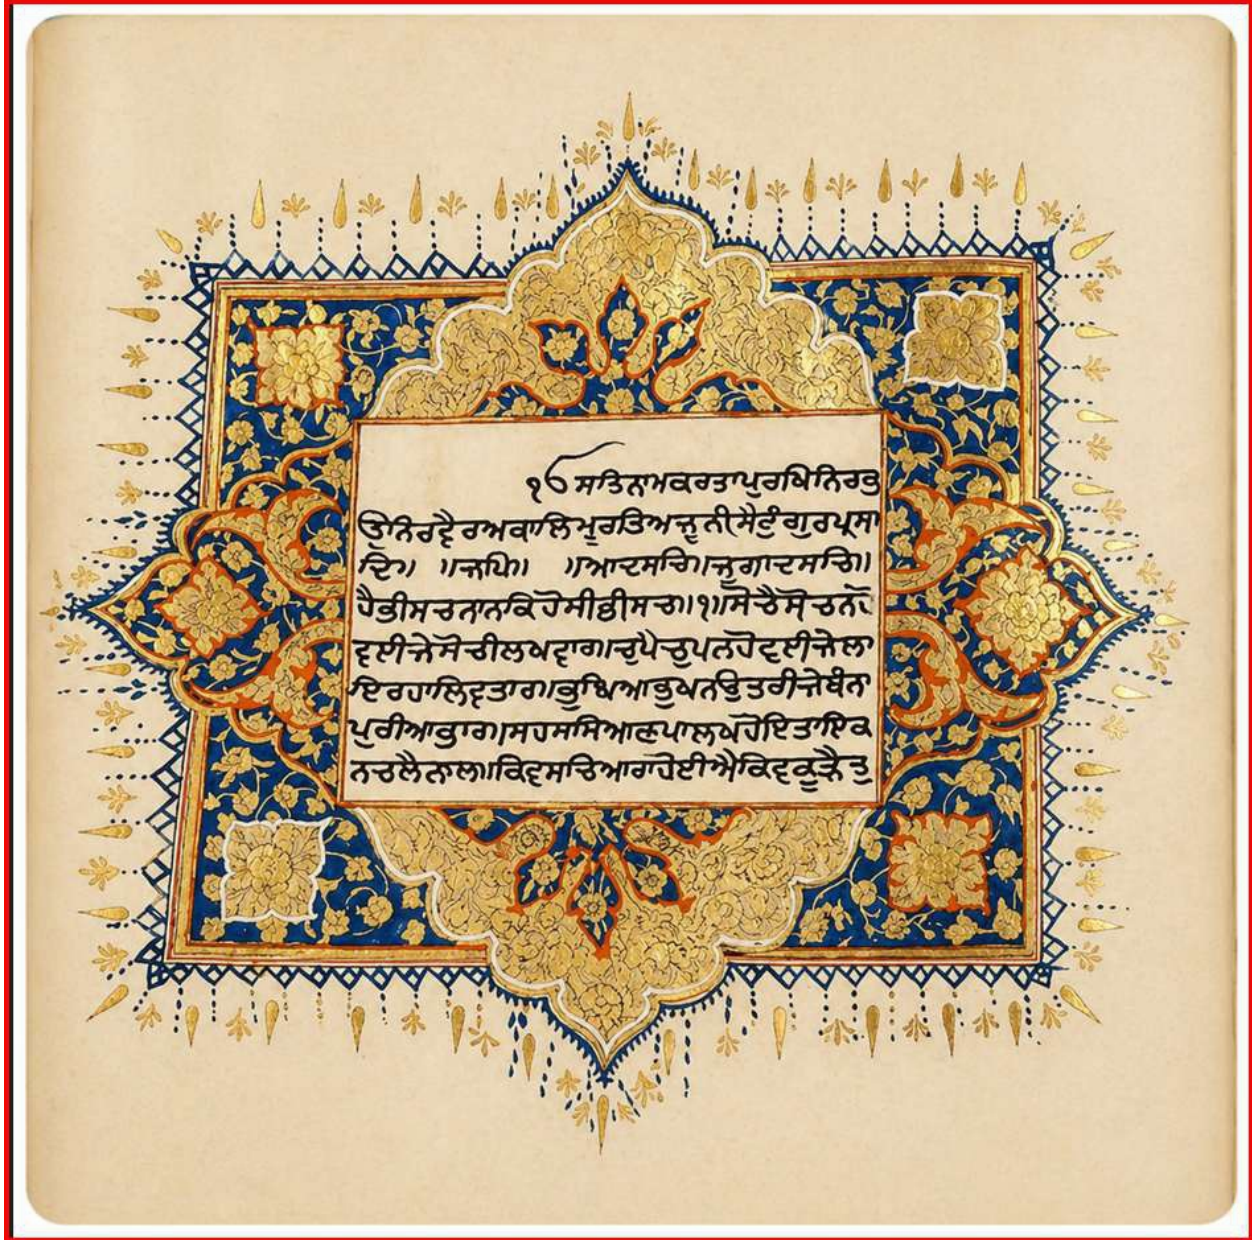 ੴ ਸਤਿਨਾਮਕਰਤਾਪੁਰਖਿਨਿਰਭ
ਉਨਿਰਵੈਰਅਕਾਲਿਮੂਰਤਿਅਜੂਨੀਸੈਭੰਗੁਰਪ੍ਰਸਾ
ਦਿ॥ ॥ਜਪਿ॥ ॥ਆਦਸਚਿ॥ਜੁਗਾਦਸਚਿ॥
ਹੈਭੀਸਚਨਾਨਕਿਹੋਸੀਭੀਸਚ॥੧॥ਸੋਚੈਸੋਚਨਹੋ
ਵਈਜੇਸੋਚੀਲਖਵਾਰ॥ਚੁਪੈਚੁਪਨਹੋਵਈਜੇਲਾ
ਇਰਹਾਲਿਵਤਾਰ॥ਭੁਖਿਆਭੁਖਨਉਤਰੀਜੇਬੰਨਾ
ਪੁਰੀਆਭਾਰ॥ਸਹਸਸਿਆਣਪਾਲਖਹੋਇਤਾਇਕ
ਨਚਲੈਨਾਲ॥ਕਿਵਸਚਿਆਰਾਹੋਈਐਕਿਵਕੂੜੈਤੁ